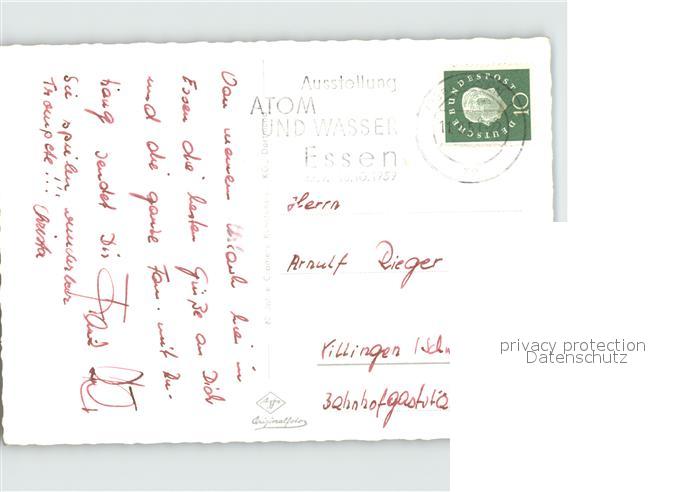 Von meinem Urlaub hier in
Essen die besten Grüße an Dich
und die ganze Fam. mit An-
hang sendet Dir
Sie spielen wunderbar
Trompete!!! Christa
Ausstellung
ATOM
UND WASSER
Essen
10.1959
DEUTSCHE BUNDESPOST
10
Herrn
Arnulf Rieger
Villingen /Schw
Bahnhofgaststä
Agfa
Originalfoto
privacy protection
Datenschutz